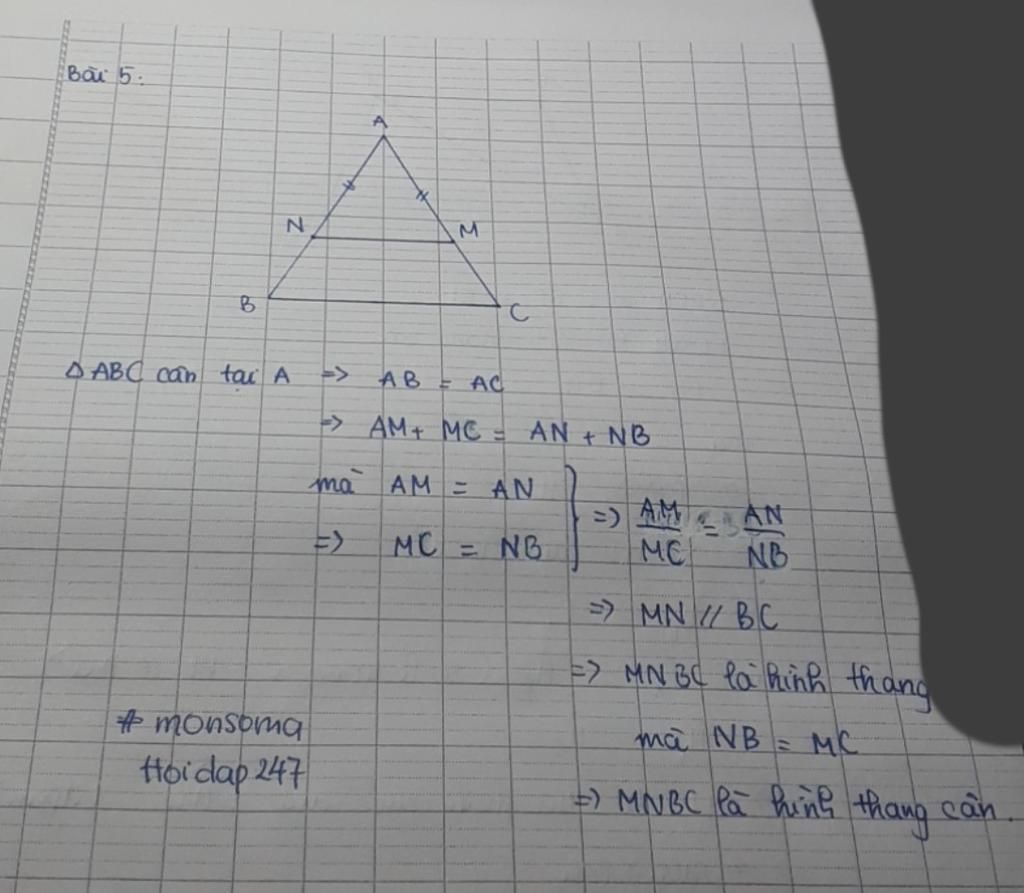 Bài 5:
A
N
M
B
C
Δ ABC cân tại A => AB = AC
=> AM + MC = AN + NB
mà AM = AN
=> MC = NB
=> AM/MC = AN/NB
=> MN // BC
=> MNBC là hình thang
mà NB = MC
=> MNBC là hình thang cân.
# monsoma
Hoidap247